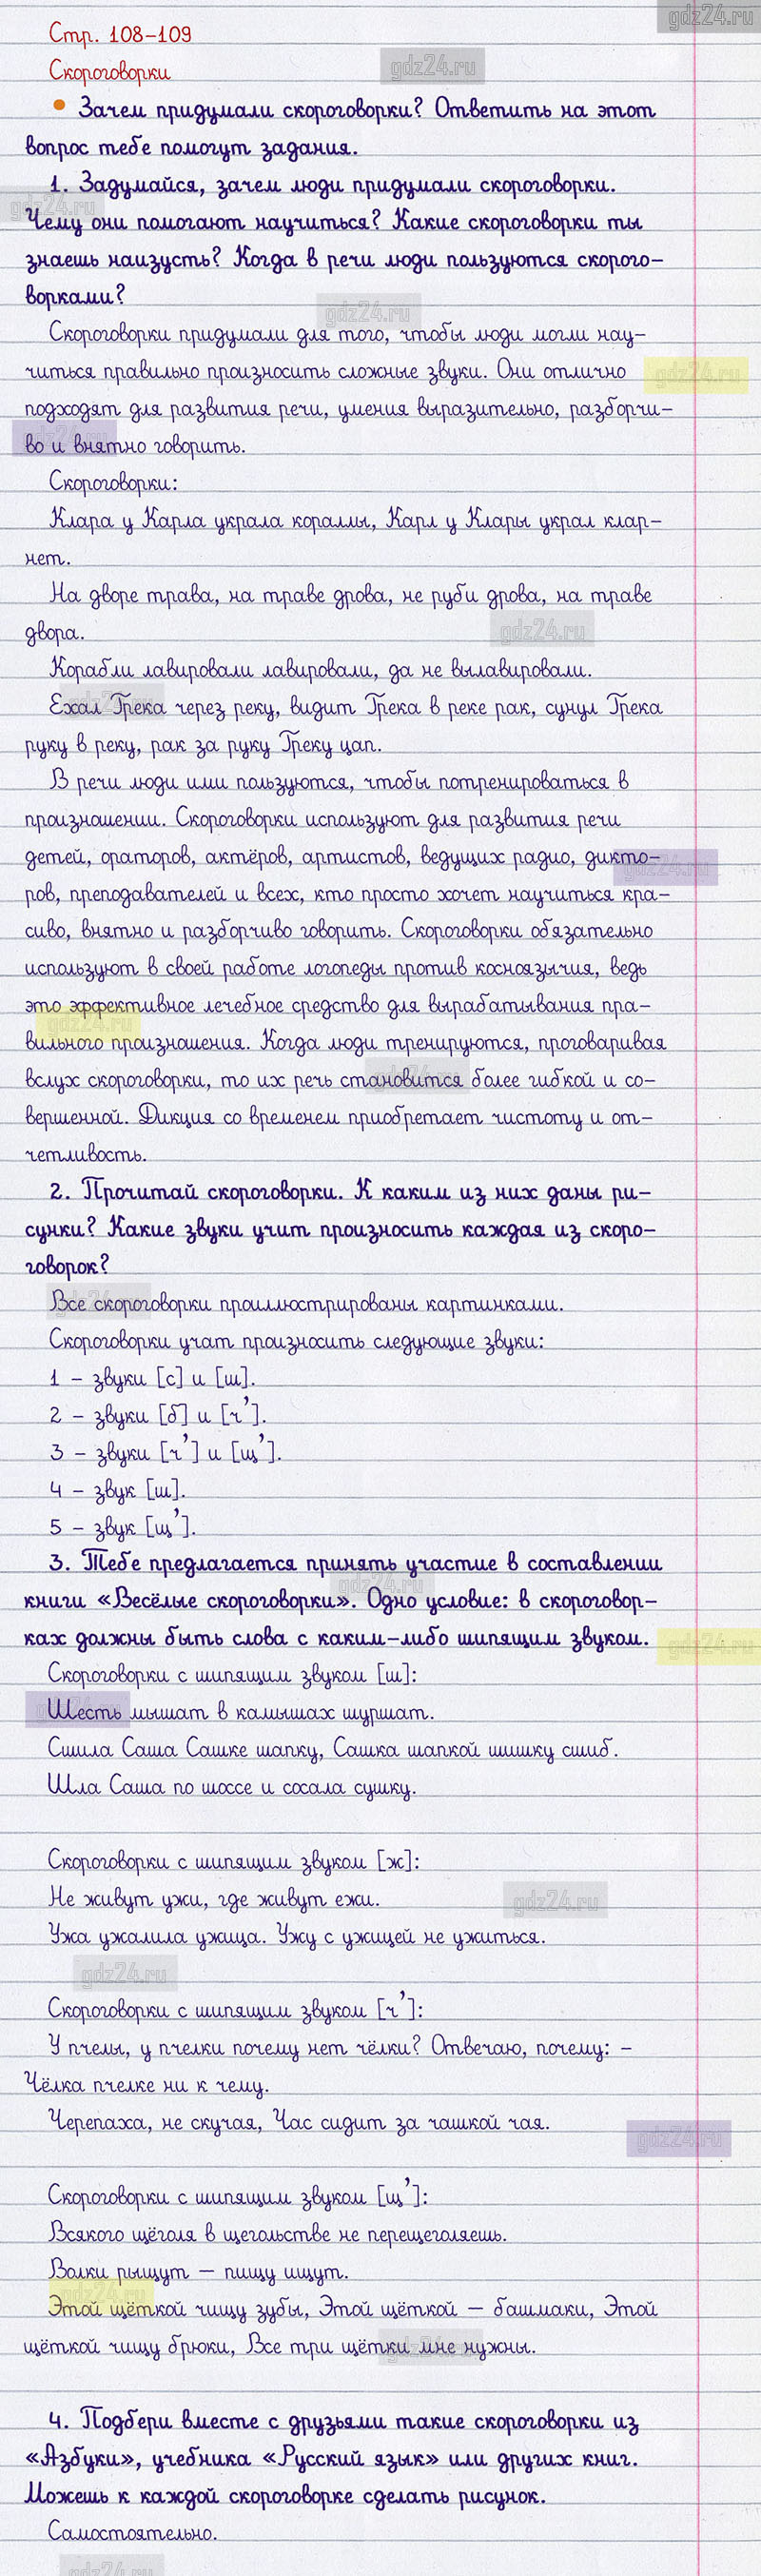 gdz24.ru
Стр. 108-109
Скороговорки
gdz24.ru
• Зачем придумали скороговорки? Ответить на этот
вопрос тебе помогут задания.
1. Задумайся, зачем люди придумали скороговорки.
gdz24.ru
Чему они помогают научиться? Какие скороговорки ты
знаешь наизусть? Когда в речи люди пользуются скорого-
ворками?
gdz24.ru
Скороговорки придумали для того, чтобы люди могли нау-
читься правильно произносить сложные звуки. Они отлично
gdz24.ru
подходят для развития речи, умения выразительно, разборчи-
во и внятно говорить.
gdz24.ru
Скороговорки:
Клара у Карла украла кораллы, Карл у Клары украл клар-
нет.
На дворе трава, на траве дрова, не руби дрова, на траве
двора.
gdz24.ru
Корабли лавировали лавировали, да не вылавировали.
Ехал Грека через реку, видит Грека в реке рак, сунул Грека
gdz24.ru
руку в реку, рак за руку Греку цап.
В речи люди или пользуются, чтобы потренироваться в
произношении. Скороговорки используют для развития речи
детей, ораторов, актёров, артистов, ведущих радио, дикто-
gdz24.ru
ров, преподавателей и всех, кто просто хочет научиться кра-
сиво, внятно и разборчиво говорить. Скороговорки обязательно
используют в своей работе логопеды против косноязычия, ведь
это эффективное лечебное средство для вырабатывания пра-
gdz24.ru
вильного произношения. Когда люди тренируются, проговаривая
вслух скороговорки, то их речь становится более гибкой и со-
gdz24.ru
вершенной. Дикция со временем приобретает чистоту и от-
четливость.
2. Прочитай скороговорки. К каким из них даны ри-
сунки? Какие звуки учит произносить каждая из скоро-
говорок?
Все скороговорки проиллюстрированы картинками.
gdz24.ru
Скороговорки учат произносить следующие звуки:
1 – звуки [с] и [ш].
2 – звуки [б] и [ч’].
3 – звуки [ч’] и [щ’].
4 – звук [ш].
5 – звук [щ’].
3. Тебе предлагается принять участие в составлении
gdz24.ru
книги «Весёлые скороговорки». Одно условие: в скороговор-
ках должны быть слова с каким-либо шипящим звуком.
gdz24.ru
Скороговорки с шипящим звуком [ш]:
Шесть мышат в камышах шуршат.
gdz24.ru
Сшила Саша Сашке шапку, Сашка шапкой шишку сшиб.
Шла Саша по шоссе и сосала сушку.
Скороговорки с шипящим звуком [ж]:
Не живут ужи, где живут ежи.
gdz24.ru
Ужа ужалила ужица. Ужу с ужицей не ужиться.
gdz24.ru
Скороговорки с шипящим звуком [ч’]:
У пчелы, у пчелки почему нет чёлки? Отвечаю, почему: –
Чёлка пчелке ни к чему.
Черепаха, не скучая, Час сидит за чашкой чая.
gdz24.ru
Скороговорки с шипящим звуком [щ’]:
Всякого щёголя в щегольстве не перещеголяешь.
Волки рыщут – пищу ищут.
gdz24.ru
Этой щёткой чищу зубы, Этой щёткой – башмаки, Этой
щёткой чищу брюки, Все три щётки мне нужны.
gdz24.ru
4. Подбери вместе с друзьями такие скороговорки из
«Азбуки», учебника «Русский язык» или других книг.
Можешь к каждой скороговорке сделать рисунок.
Самостоятельно.
gdz24.ru